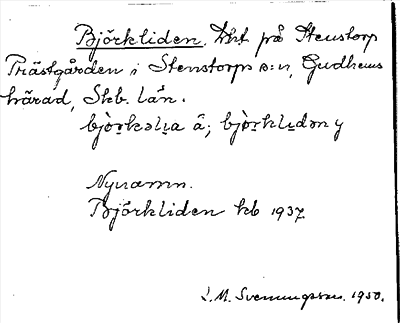 Björkliden. Lht på Stenstorp
Prästgården i Stenstorps s:n, Gudhems
härad, Skb. län.
bjò̱rkəli̱a ä; bjò̱rkli̱dən y
Nynamn.
Björkliden kb 1937
S. M. Svenungsson. 1950.